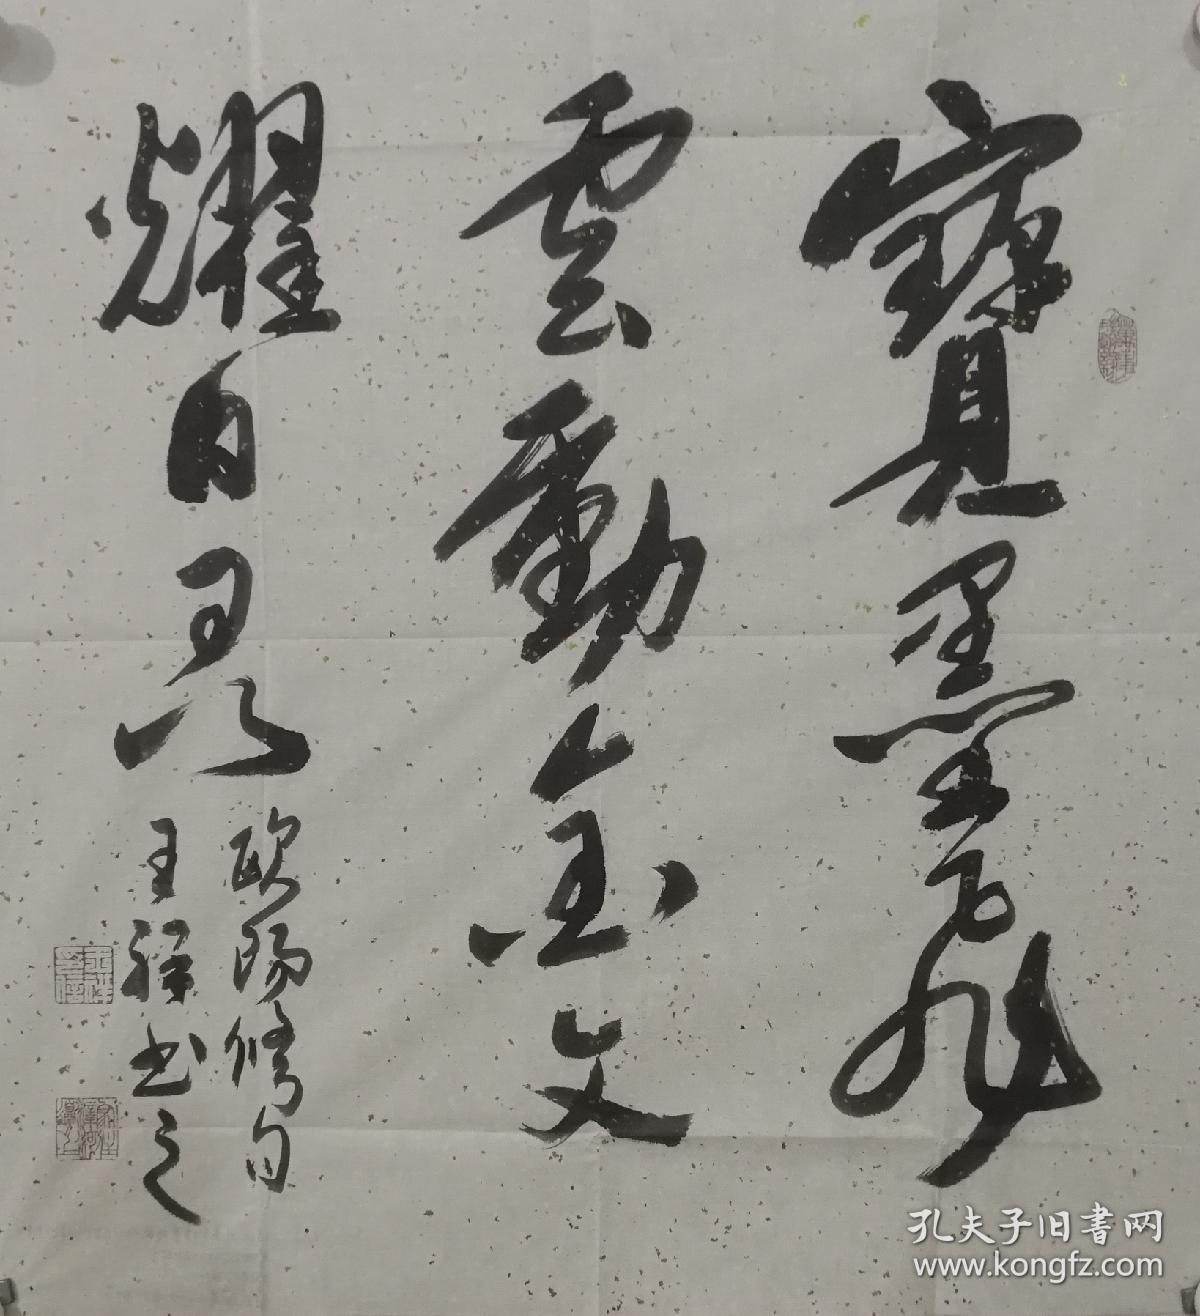 寶墨飛
雲動金文
耀日晃
歐陽修句
王禄書之
孔夫子旧書网
www.kongfz.com